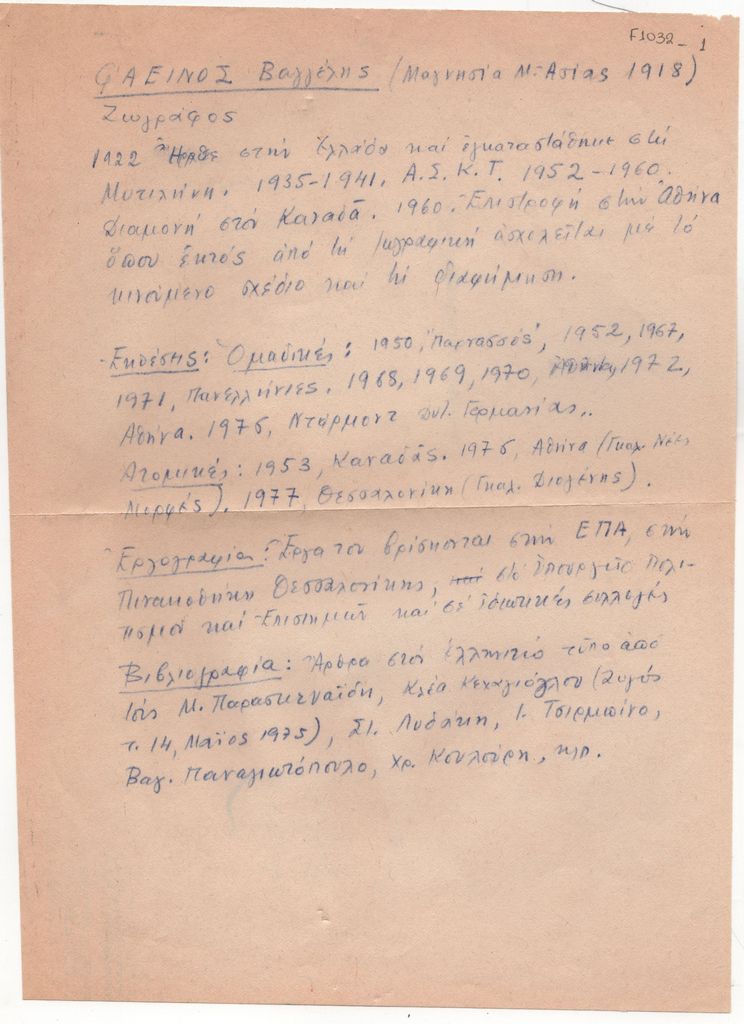 F1032 - 1
ΦΑΕΙΝΟΣ Βαγγέλης (Μαγνησία Μ. Ασίας 1918)
Ζωγράφος
1922 Ἦρθε στήν Ἑλλάδα καί ἐγκαταστάθηκε στή
Μυτιλήνη. 1935-1941, Α.Σ.Κ.Τ. 1952-1960.
Διαμονή στόν Καναδᾶ. 1960. Ἐπιστροφή στήν Ἀθήνα
ὅπου ἐκτός ἀπό τή ζωγραφική ἀσχολεῖται μέ τό
κινούμενο σχέδιο καί τή διαφήμηση.
Ἐκθέσης: Ὁμαδικές: 1950, "Παρνασσός", 1952, 1967,
1971, Πανελλήνιες. 1968, 1969, 1970, 1972,
Ἀθήνα. 1976, Ντάρμοντ Δυτ. Γερμανίας.
Ατομικές: 1953, Καναδᾶς. 1976, Ἀθήνα (Γκαλ. Νέες
Μορφές). 1977, Θεσσαλονίκη (Γκαλ. Διογένης).
Ἐργογραφία: Ἔργα του βρίσκονται στήν ΕΠΑ, στήν
Πινακοθήκη Θεσσαλονίκης, καί στό Ὑπουργεῖο Πολι-
τισμοῦ καί Ἐπιστημῶν καί σέ ἰδιωτικές συλλογές
Βιβλιογραφία: Ἄρθρα στόν ἑλληνικό τύπο ἀπό
τούς Μ. Παρασκευαΐδη, Κλέα Κεχαγιόγλου (Ζυγός
τ. 14, Μάϊος 1975), Στ. Λυδάκη, Ι. Τσιρμπίνο,
Βαγ. Παναγιωτόπουλο, Χρ. Κουλούρη, κλπ.